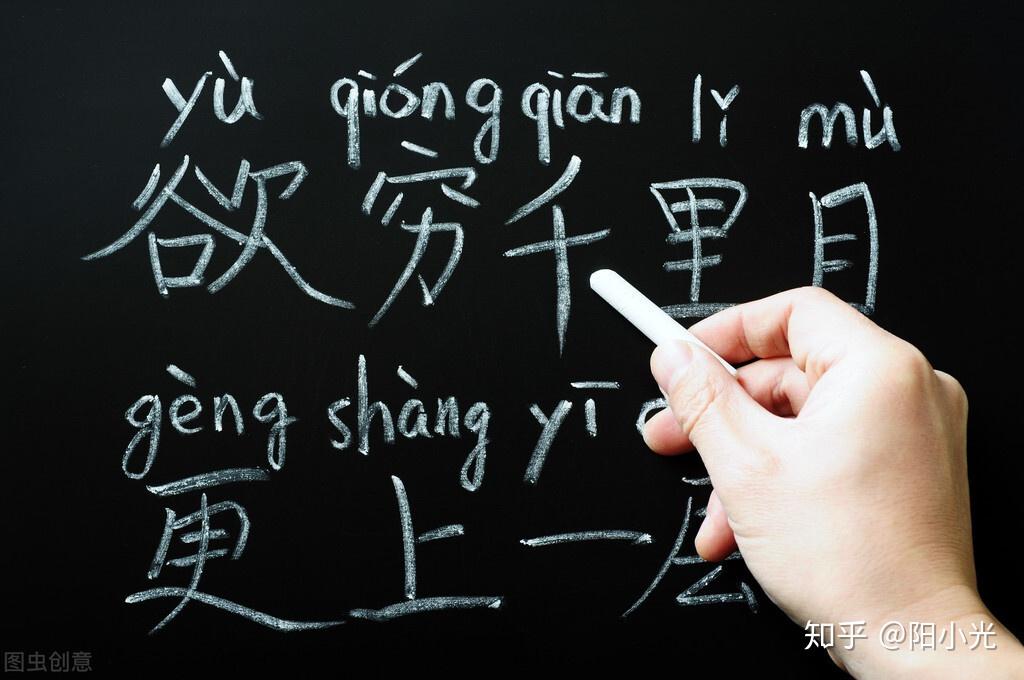 yù qióng qiān lǐ mù
欲穷千里目
gèng shàng yī
更上一层
知乎 @阳小光
图虫创意